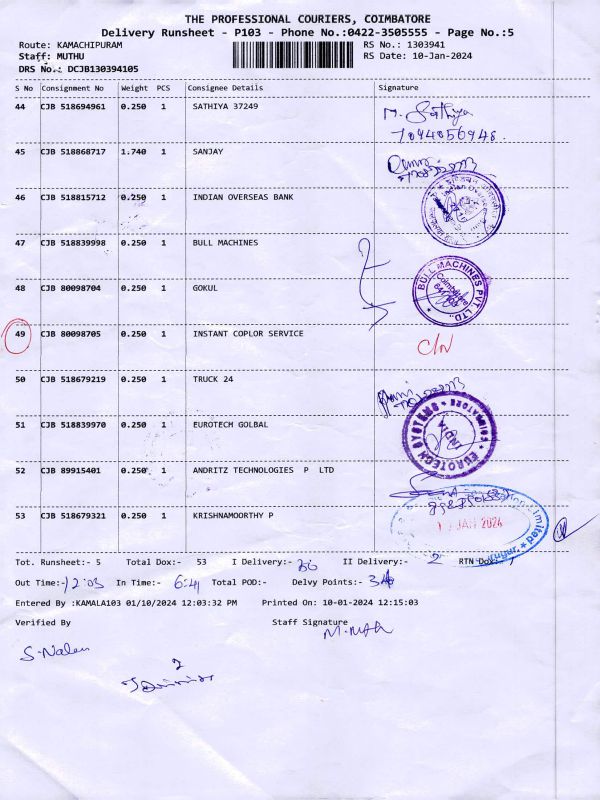 THE PROFESSIONAL COURIERS, COIMBATORE
Delivery Runsheet - P103 - Phone No.:0422-3505555 - Page No.:5
Route: KAMACHIPURAM RS No.: 1303941
Staff: MUTHU RS Date: 10-Jan-2024
DRS No.: DCJB130394105
S No Consignment No Weight PCS Consignee Details Signature
44 CJB 518694961 0.250 1 SATHIYA 37249 M. Sathiya
7094056948.
45 CJB 518868717 1.740 1 SANJAY
46 CJB 518815712 0.250 1 INDIAN OVERSEAS BANK
47 CJB 518839998 0.250 1 BULL MACHINES
BULL MACHINES PVT. LTD.
Coimbatore
48 CJB 80098704 0.250 1 GOKUL
49 CJB 80098705 0.250 1 INSTANT COPLOR SERVICE C/N
50 CJB 518679219 0.250 1 TRUCK 24
51 CJB 518839970 0.250 1 EUROTECH GOLBAL
EUROTECH SYSTEMS COIMBATORE
INDIA
52 CJB 89915401 0.250 1 ANDRITZ TECHNOLOGIES P LTD
53 CJB 518679321 0.250 1 KRISHNAMOORTHY P
JAN 2024
Limited
Tot. Runsheet:- 5 Total Dox:- 53 I Delivery:- II Delivery:- 2 RTN Dox:-
Out Time:- 12:03 In Time:- 6:41 Total POD:- Delvy Points:- 34
Entered By :KAMALA103 01/10/2024 12:03:32 PM Printed On: 10-01-2024 12:15:03
Verified By Staff Signature
S. Nalen